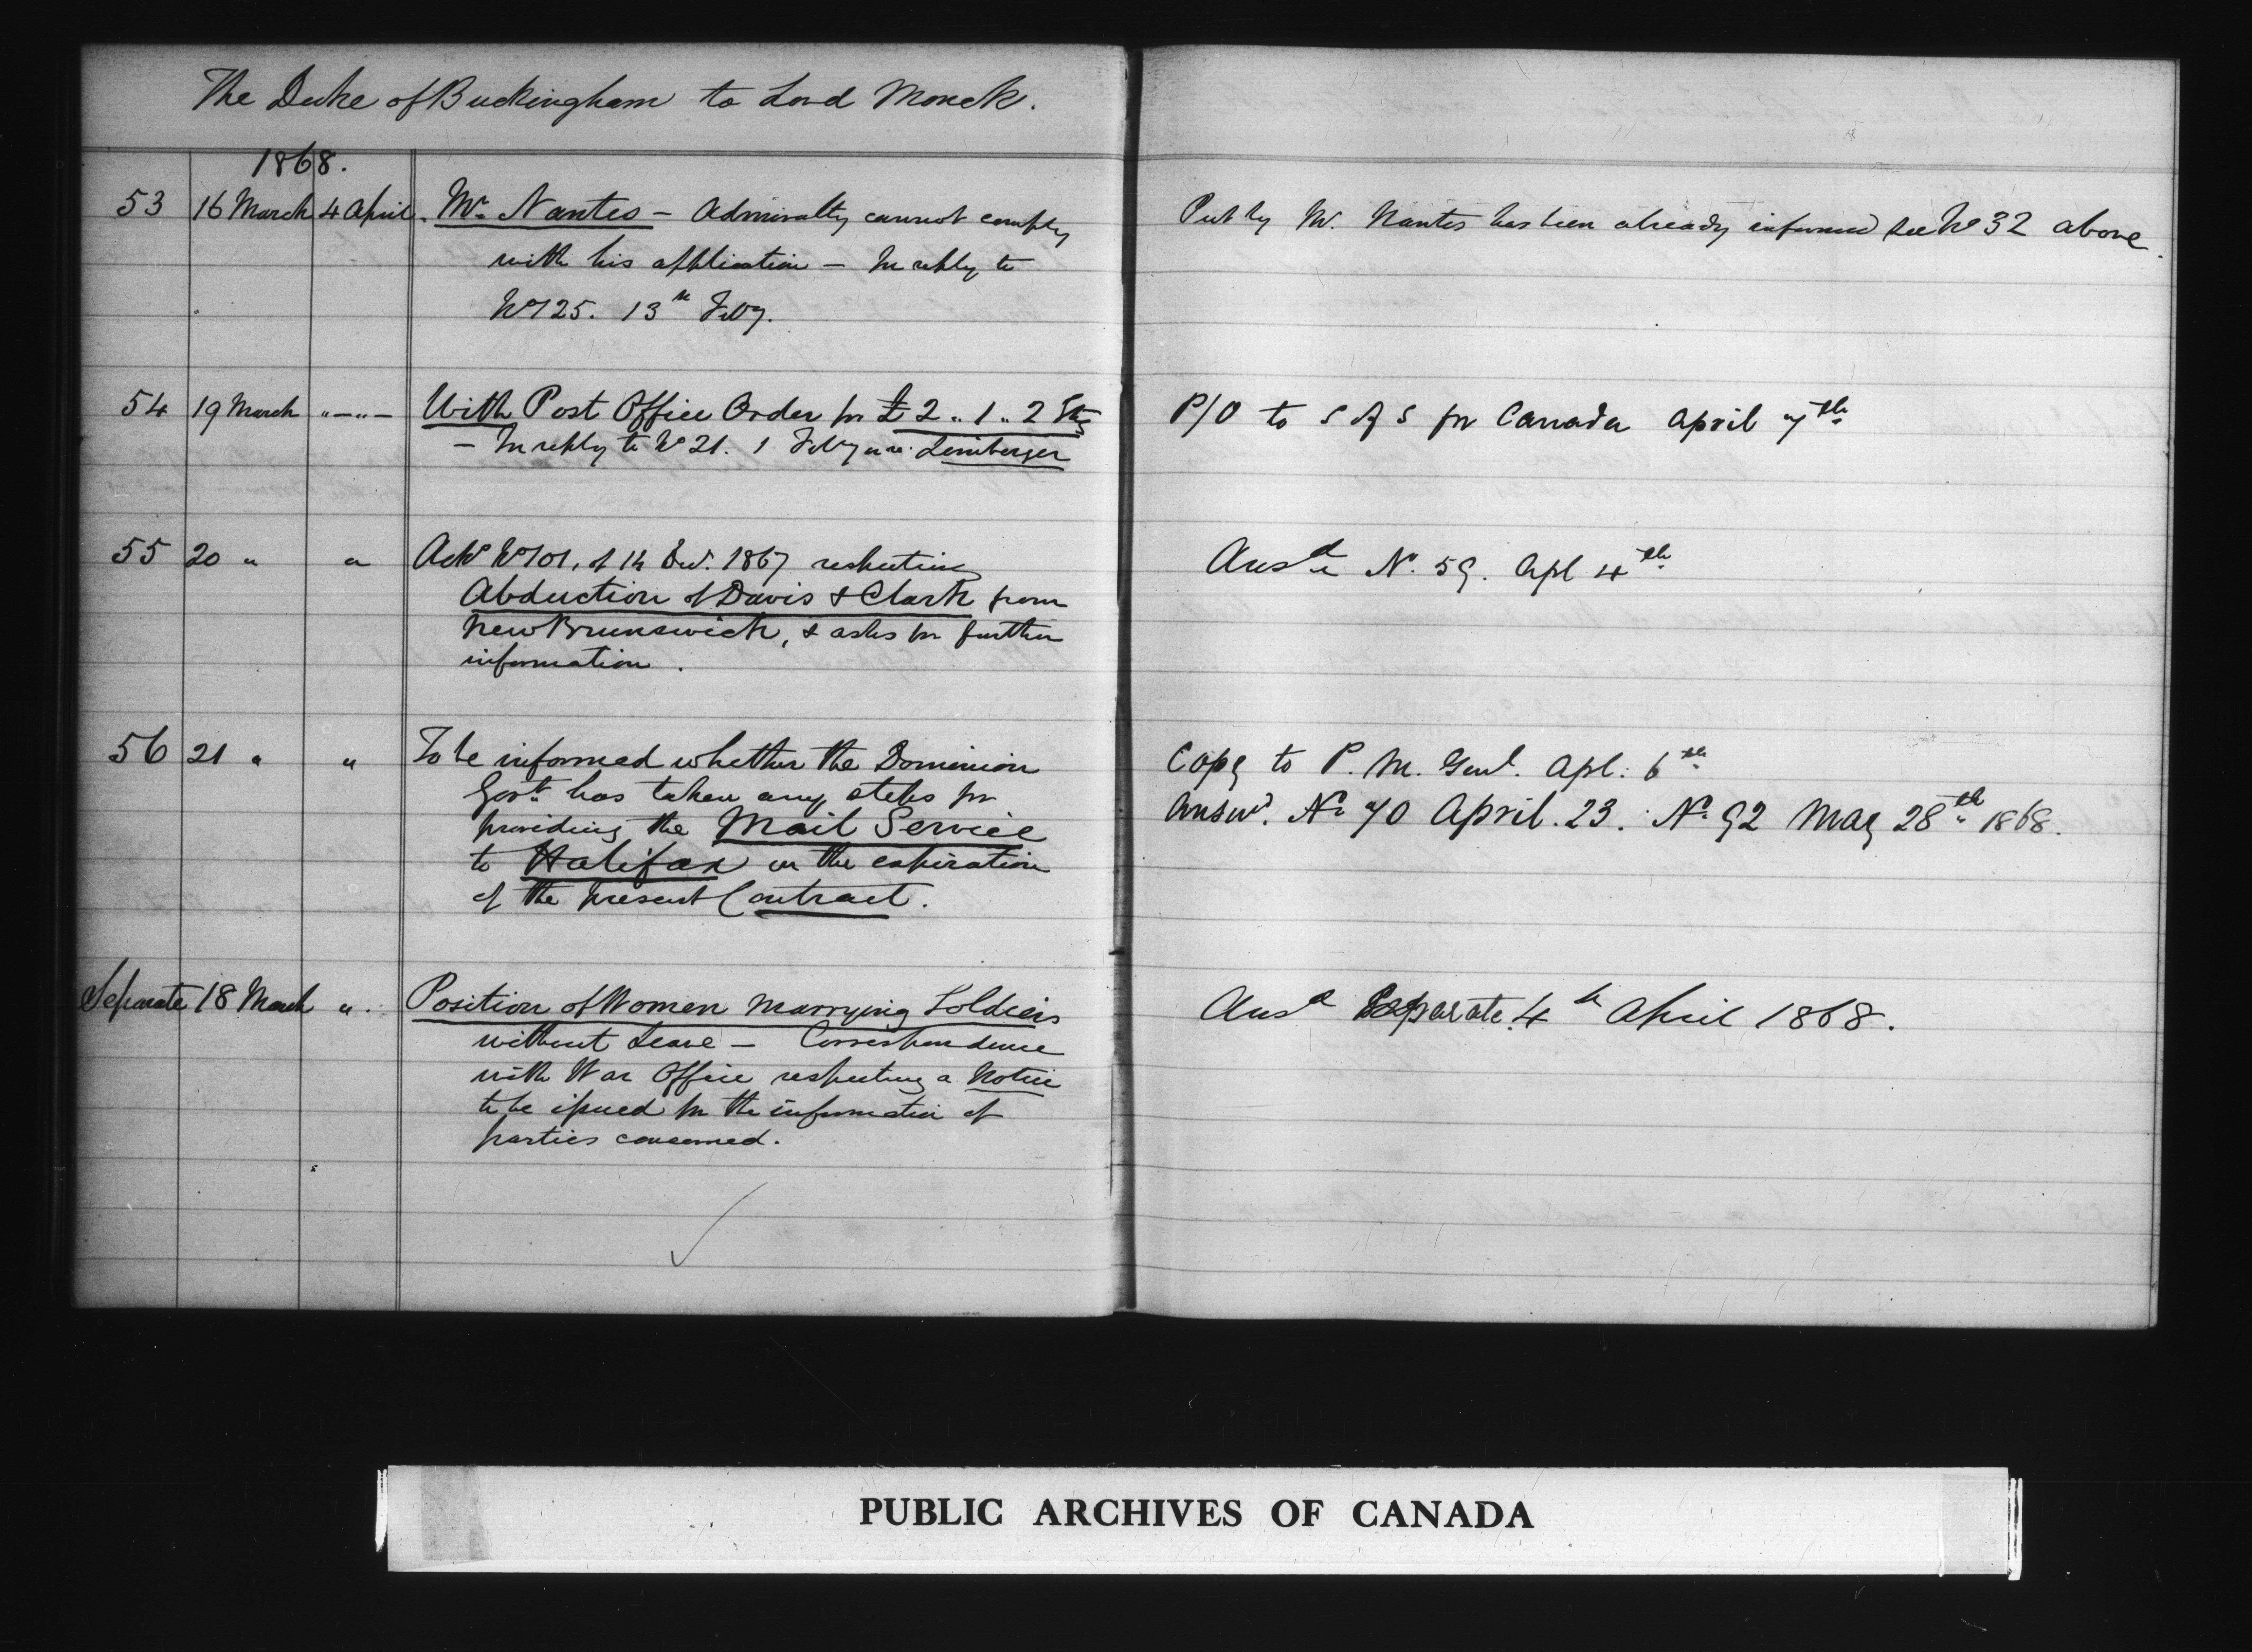 The Duke of Buckingham to Lord Monck.
1868.
53 16 March 4 April. Mr. Nantes – Admiralty cannot comply
with his application – In reply to
No 125. 13th Feby.
Put by Mr. Nantes has been already informed see No 32 above.
54 19 March "–"– With Post Office Order for £2..1..2 Stg
– In reply to No 21. 1 Feby in re: Leimberger
P/O to S of S for Canada April 7th
55 20 " " Ackg No 101, of 14 Decr. 1867 respecting
Abduction of Davis & Clark from
New Brunswick, & asks for further
information.
Ansd No. 59. Apl 4th
56 21 " " To be informed whether the Dominion
Govt. has taken any steps for
providing the Mail Service
to Halifax on the expiration
of the present Contract.
Copy to P. M. Genl. Apl: 6th
Answd. No 70 April. 23. No 92 May 28th 1868.
Separate 18 March ". Position of Women marrying Soldiers
without Leave – Correspondence
with War Office respecting a Notice
to be issued for the information of
parties concerned.
Ansd Separate. 4th April 1868.
PUBLIC ARCHIVES OF CANADA